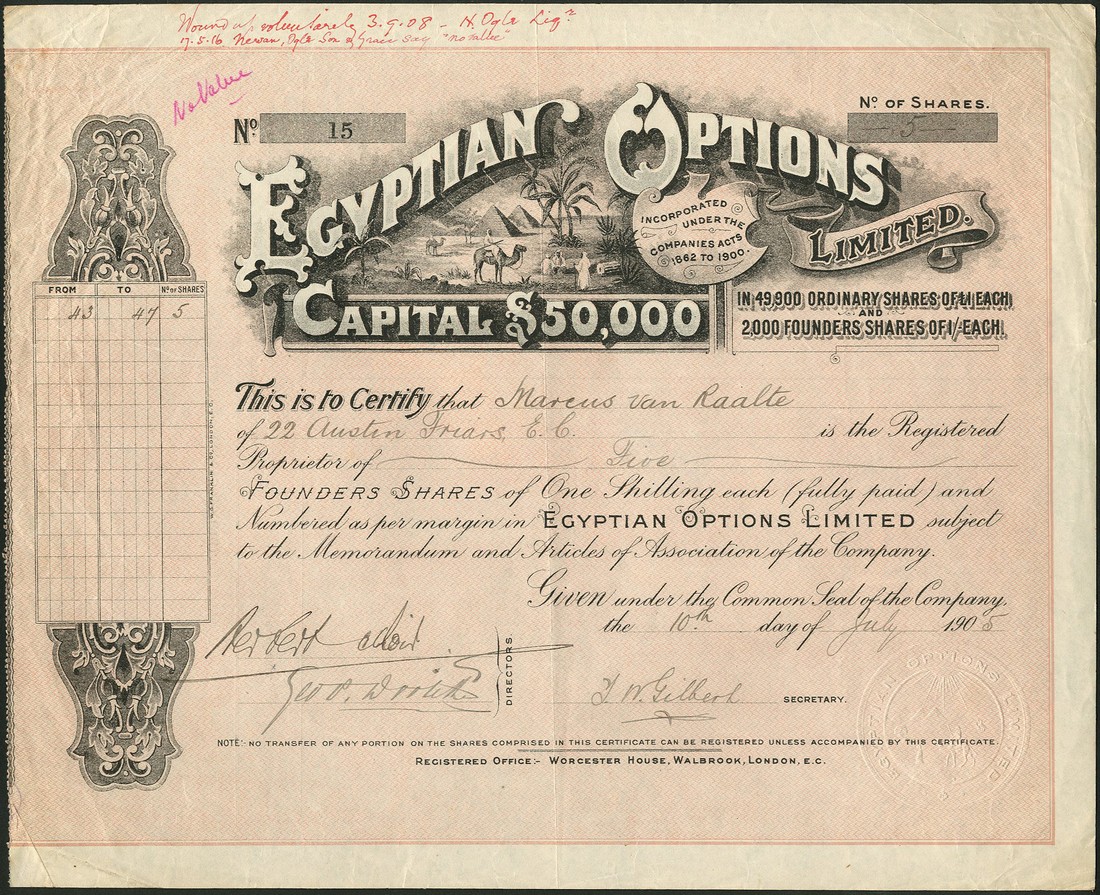 Wound up voluntarily 3.9.08 - H. Ogle Liqr
17.5.16 Newan, Ogle Son & Grace say "no value"
No Value
No. 15
No. OF SHARES.
5
EGYPTIAN OPTIONS
LIMITED.
INCORPORATED
UNDER THE
COMPANIES ACTS
1862 TO 1900.
CAPITAL $50,000
IN 49,900 ORDINARY SHARES OF £1 EACH,
AND
2,000 FOUNDERS SHARES OF 1/- EACH.
FROM TO No OF SHARES
43 47 5
This is to Certify that Marcus van Raalte
of 22 Austin Friars, E.C. is the Registered
Proprietor of Five
FOUNDERS SHARES of One Shilling each (fully paid) and
Numbered as per margin in EGYPTIAN OPTIONS LIMITED subject
to the Memorandum and Articles of Association of the Company.
Given under the Common Seal of the Company.
the 10th day of July 1905
Herbert
Geo. P.
DIRECTORS.
T. W. Gilbert SECRETARY.
NOTE:- NO TRANSFER OF ANY PORTION ON THE SHARES COMPRISED IN THIS CERTIFICATE CAN BE REGISTERED UNLESS ACCOMPANIED BY THIS CERTIFICATE.
REGISTERED OFFICE:- WORCESTER HOUSE, WALBROOK, LONDON, E.C.
EGYPTIAN OPTIONS LIMITED